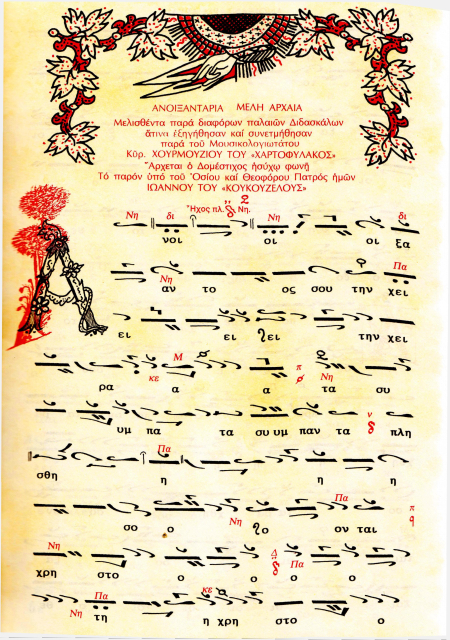 ΑΝΟΙΞΑΝΤΑΡΙΑ ΜΕΛΗ ΑΡΧΑΙΑ
Μελισθέντα παρά διαφόρων παλαιῶν Διδασκάλων
ἅτινα ἐξηγήθησαν καί συνετμήθησαν
παρά τοῦ Μουσικολογιωτάτου
Κύρ. ΧΟΥΡΜΟΥΖΙΟΥ ΤΟΥ «ΧΑΡΤΟΦΥΛΑΚΟΣ»
Ἄρχεται ὁ Δομέστιχος ἡσύχῳ φωνῇ
Τό παρόν ὑπό τοῦ Ὁσίου καί Θεοφόρου Πατρός ἡμῶν
ΙΩΑΝΝΟΥ ΤΟΥ «ΚΟΥΚΟΥΖΕΛΟΥΣ»
Ἦχος πλ. Νη.
Νη δι Νη δι
Α νοι οι οι ξα
Νη Πα
αν το ος σου την χει
ει ει ει την χει
κε Μ π Νη
ρα α α τα συ
ν
υμ πα τα συ υμ παν τα πλη
Πα
σθη η η η
Νη Πα π
σο ο ο ον ται
Νη Δ Πα
χρη στο ο ο ο ο
Πα κε
τη η χρη στο ο